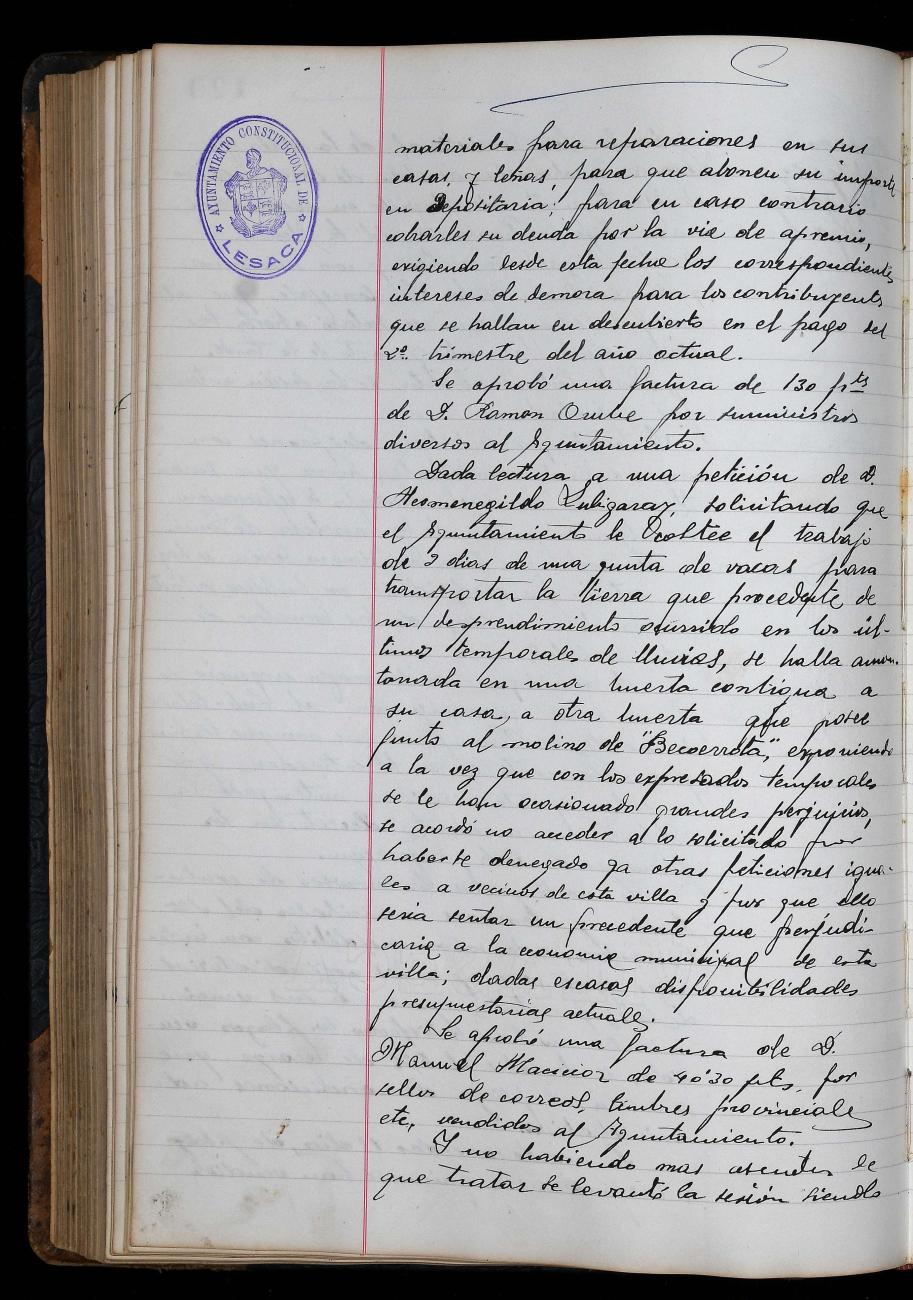 AYUNTAMIENTO CONSTITUCIONAL DE
LESACA
materiales para reparaciones en sus
casas, y leñas, para que abonen su importe
en Depositaria; para en caso contrario
cobrarles su deuda por la vie de apremio,
exigiendo desde esta fecha los correspondientes
intereses de demora para los contribuyents
que se hallan en descubierto en el pago del
2º trimestre del año actual.
Se aprobó una factura de 130 pts
de D. Ramon por suministros
diversos al Ayuntamiento.
Dada lectura a una petición de D.
Hermenegildo solicitando que
el Ayuntamiento le costee el trabajo
de 2 dias de una yunta de vacas para
transportar la tierra que procedente de
un desprendimiento ocurrido en los úl-
timos temporales de lluvias, se halla amon-
tonada en una huerta contigua a
su casa, a otra huerta que posee
junto al molino de "Becoerrota", exponiendo
a la vez que con los expresados temporales
se le han ocasionado grandes perjuicios,
se acordó no acceder a lo solicitado por
haberse denegado ya otras peticiones igua-
les a vecinos de esta villa y por que ello
seria sentar un precedente que perjudi-
caria a la economia municipal de esta
villa; dadas escasas disponibilidades
presupuestarias actuales.
Se aprobó una factura de D.
Manuel Macicior de 40'30 pts. por
sellos de correos, timbres provinciales
etc, vendidos al Ayuntamiento.
Y no habiendo mas asuntos de
que tratar se levantó la sesión siendo